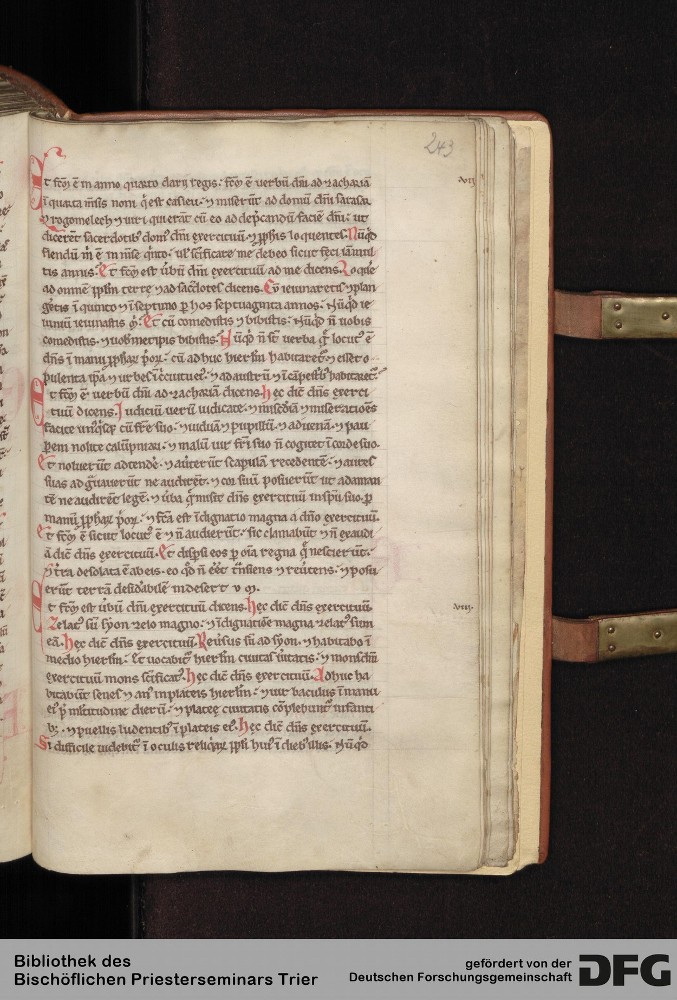 243
Et fcm̄ ē in anno quarto darij regis: fcm̄ ē verbū dn̄i ad zachariā
ī quarta mēsis noni q̇ est casleu. ⁊ miserūt ad domū dn̄i sarasar
⁊ rogomelech ⁊ uiri qui erāt cū eo ad dep̄candū faciē dn̄i: ut
dicerēt sacerdotibꝰ domꝰ dn̄i exercituū. ⁊ ꝓphīs loquentes. Nūqͥd
flendū m̄ ē in mēse qͥnto. ul' sc̄ificare me debeo sicut feci iā mul
tis annis. Et fcm̄ est ūbū dn̄i exercituū ad me dicens. Loq̄re
ad omnē ppl'm terre ⁊ ad sac̄dotes dicens. Cū ieiunaretis ⁊ plan
gētis ī quinto ⁊ ī septimo ꝑ hos septuaginta annos. Nūqͥd ie
iuniū ieiunastis m̄. Et cū comedistis ⁊ bibistis. Nūqͥd n̄ uobis
comedistis. ⁊ uobmetipis bibistis. Nūqͥd n̄ st̄ verba q̄ locutꝰ ē
dn̄s ī manu ꝓphaꝝ pͥorū. cū adhuc hierl'm habitaret ⁊ esset o
pulenta ip̄a ⁊ urbes ī c̄cuitu eiꝰ. ⁊ ad austrū ⁊ ī cāpestͥbꝰ habitaret.
Et fcm̄ ē verbū dn̄i ad zachariā dicens. hec dic̄ dn̄s exerci
tuū dicens. Iudiciū verū iudicate. ⁊ mīsc̄diā ⁊ miseratiōes
facite unꝰqͥsqꝫ cū fr̄e suo. ⁊ uiduā ⁊ pupillū. ⁊ aduenā. ⁊ pau
ꝑem nolite calūpniari. ⁊ malū uir fr̄i suo n̄ cogitet ī corde suo.
Et noluerūt adtendē. ⁊ auerterūt scapulā recedentē. ⁊ aures
suas adgͣuauerūt ne audirēt. ⁊ cor suū posuerūt ut adaman
tē ne audirēt legē. ⁊ ūba q̄ misit dn̄s exercituū in sp̄u suo. ꝑ
manū ꝓphaꝝ pͥorū. ⁊ fc̄a est īdignatio magna a dn̄o exercituū.
Et fcm̄ ē sicut locutꝰ ē ⁊ n̄ audierūt. sic clamabūt ⁊ n̄ exaudi
ā dic̄ dn̄s exercituū. Et disp̄si eos ꝑ oīa regna q̄ nescierūt.
⁊ t̄ra desolata ē ab eis. eo qͥd n̄ eēt tͣnsiens ⁊ reūtens. ⁊ posu
erūt terrā desid̄abilē in desertū.
Et fcm̄ est ūbū dn̄i exercituū dicens. hec dic̄ dn̄s exercituū.
Zelatꝰ sū syon zelo magno. ⁊ īdignatiōe magna zelatꝰ sum
eā. hec dic̄ dn̄s exercituū. Reūsus sū ad syon. ⁊ habitabo ī
medio hierl'm. Et uocabitͬ hierl'm ciuitas ūitatis. ⁊ mons dn̄i
exercituū mons sc̄ificatꝰ. hec dic̄ dn̄s exercituū. Adhuc ha
bitabūt senes ⁊ anꝰ in plateis hierl'm. ⁊ uir baculus ī manu
eiꝰ p̄ ml'titudine dierū. ⁊ platee ciuitatis cōplebuntͬ infanti
bꝫ. ⁊ puellis ludentibꝰ ī plateis eiꝰ. hec dic̄ dn̄s exercituū.
Si difficile uidebitͬ ī oculis reliqͥaꝝ ppl'i huiꝰ ī diebꝰ illis. Nūqͥd
.vij.
.viij.
Bibliothek des
Bischöflichen Priesterseminars Trier
gefördert von der
Deutschen Forschungsgemeinschaft
DFG